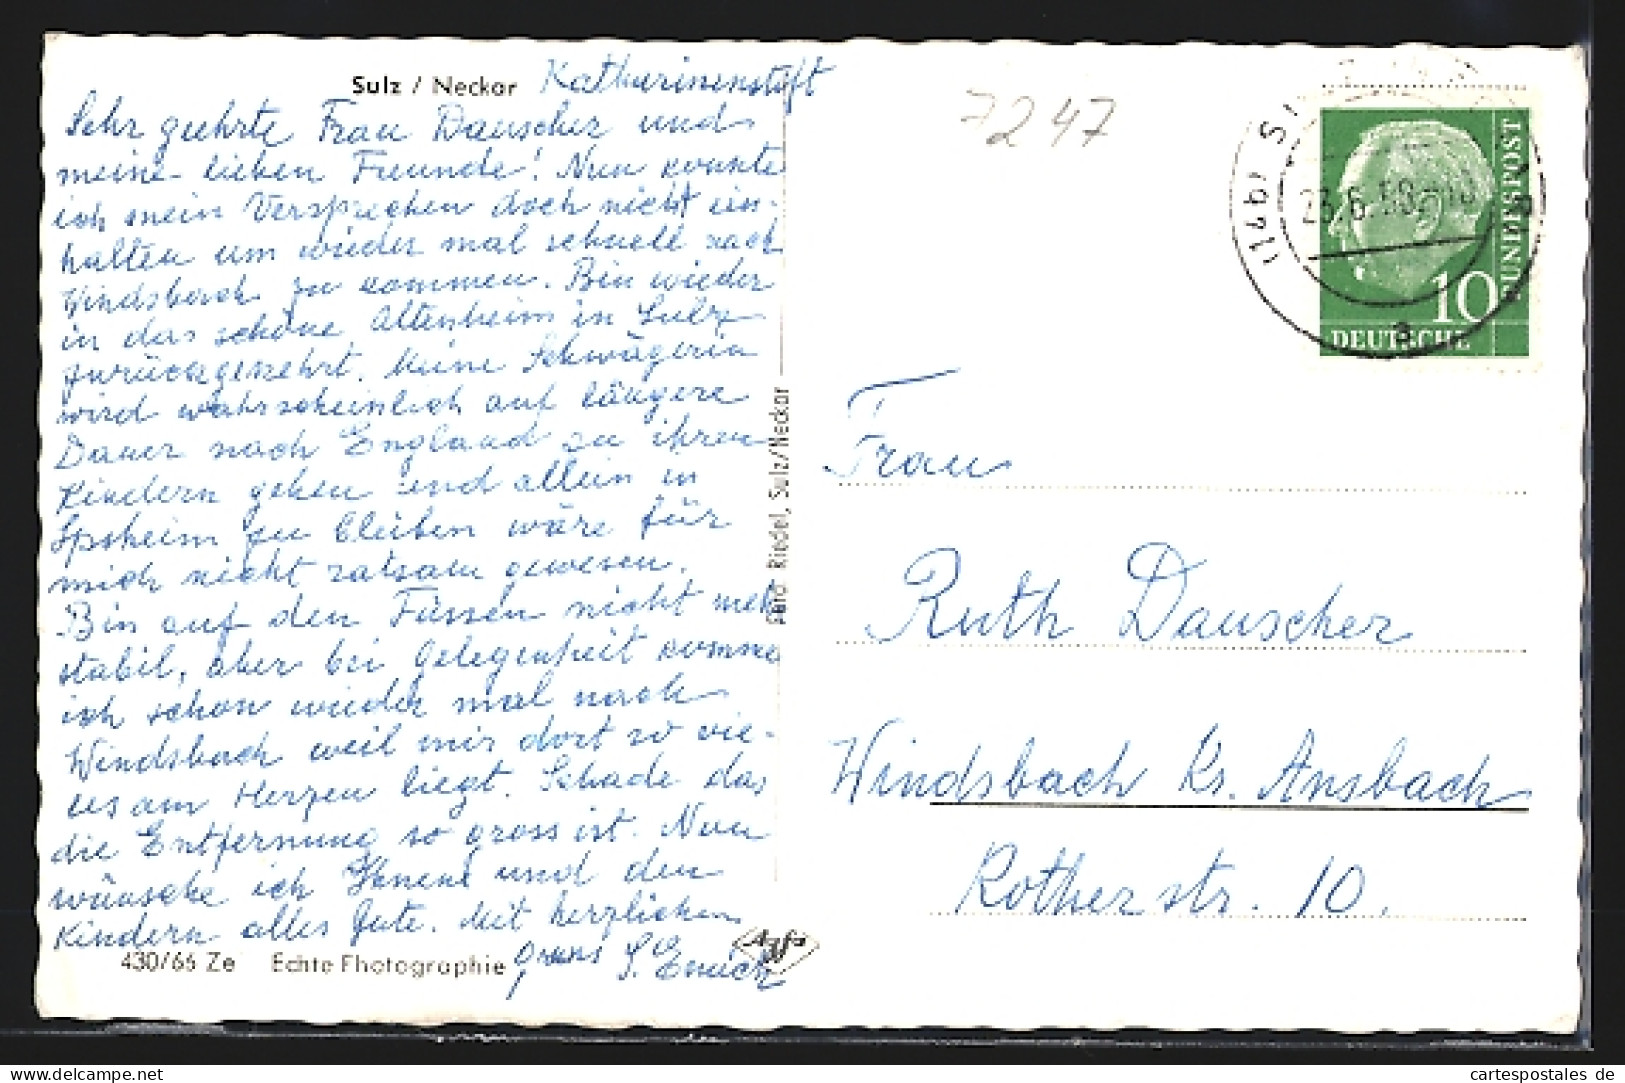 Sulz / Neckar Katharinenstift
Sehr geehrte Frau Dauscher und
meine lieben Freunde! Nun konnte
ich mein Versprechen doch nicht ein-
halten um wieder mal schnell nach
Windsbach zu kommen. Bin wieder
in das schöne Altersheim in Sulz
zurückgekehrt. Meine Schwägerin
wird wahrscheinlich auf längere
Dauer nach England zu ihren
Kindern gehen und allein in
Ipsheim zu bleiben wäre für
mich nicht ratsam gewesen.
Bin auf den Füssen nicht mehr
stabil, aber bei Gelegenheit komme
ich schon wieder mal nach
Windsbach weil mir dort so vie-
les am Herzen liegt. Schade das
die Entfernung so gross ist. Nun
wünsche ich Ihnen und den
Kindern alles Gute. Mit herzlichen
Gruss
430/66 Ze Echte Photographie
Riedel, Sulz/Neckar
7247
23.6.58
10
DEUTSCHE
BUNDESPOST
Frau
Ruth Dauscher
Windsbach Kr. Ansbach
Rotherstr. 10.
cartespostales.de
cartespostales de